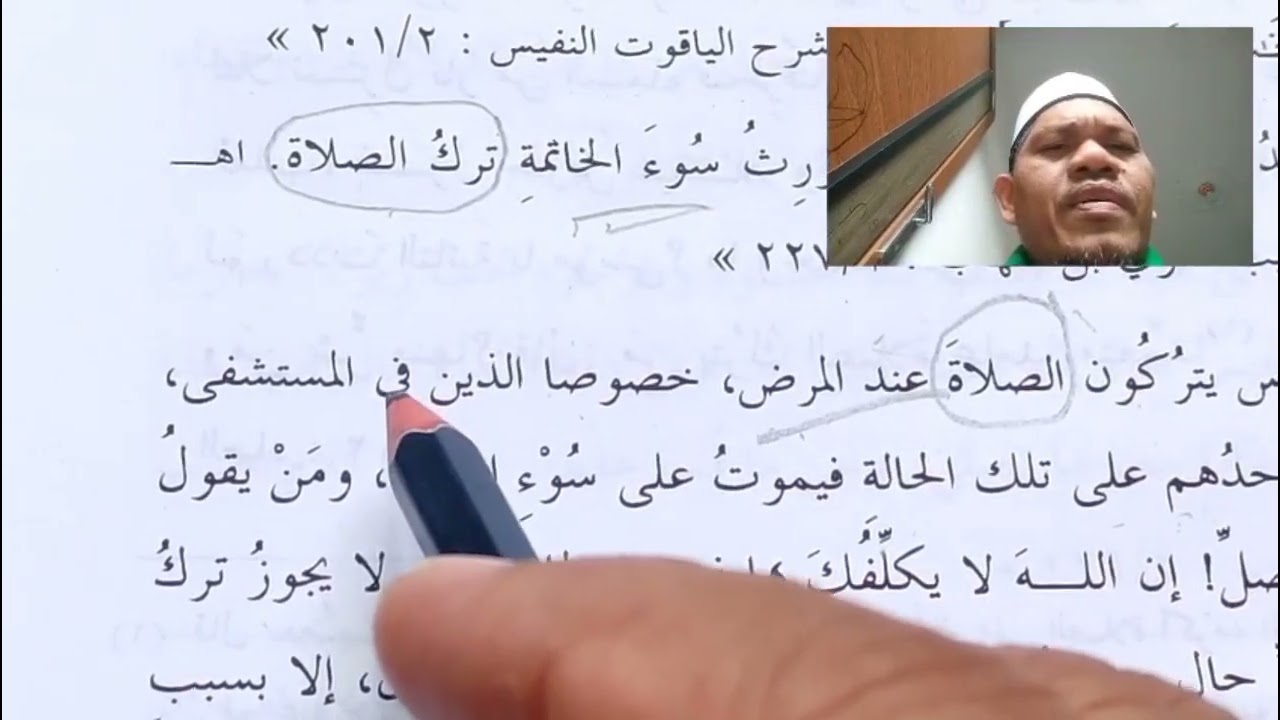 شرح الياقوت النفيس : ٢٠١/٢ »
سُوءَ الخاتمةِ تركُ الصلاة. اهـ
« ٢٢٧
يتركُون الصلاةَ عندَ المرض، خصوصا الذين في المستشفى،
حدُهم على تلك الحالة فيموتُ على سُوْءِ ، ومَنْ يقولُ
صلِّ! إن اللهَ لا يكلِّفُكَ لا يجوزُ تركُ
حال ، إلا بسبب